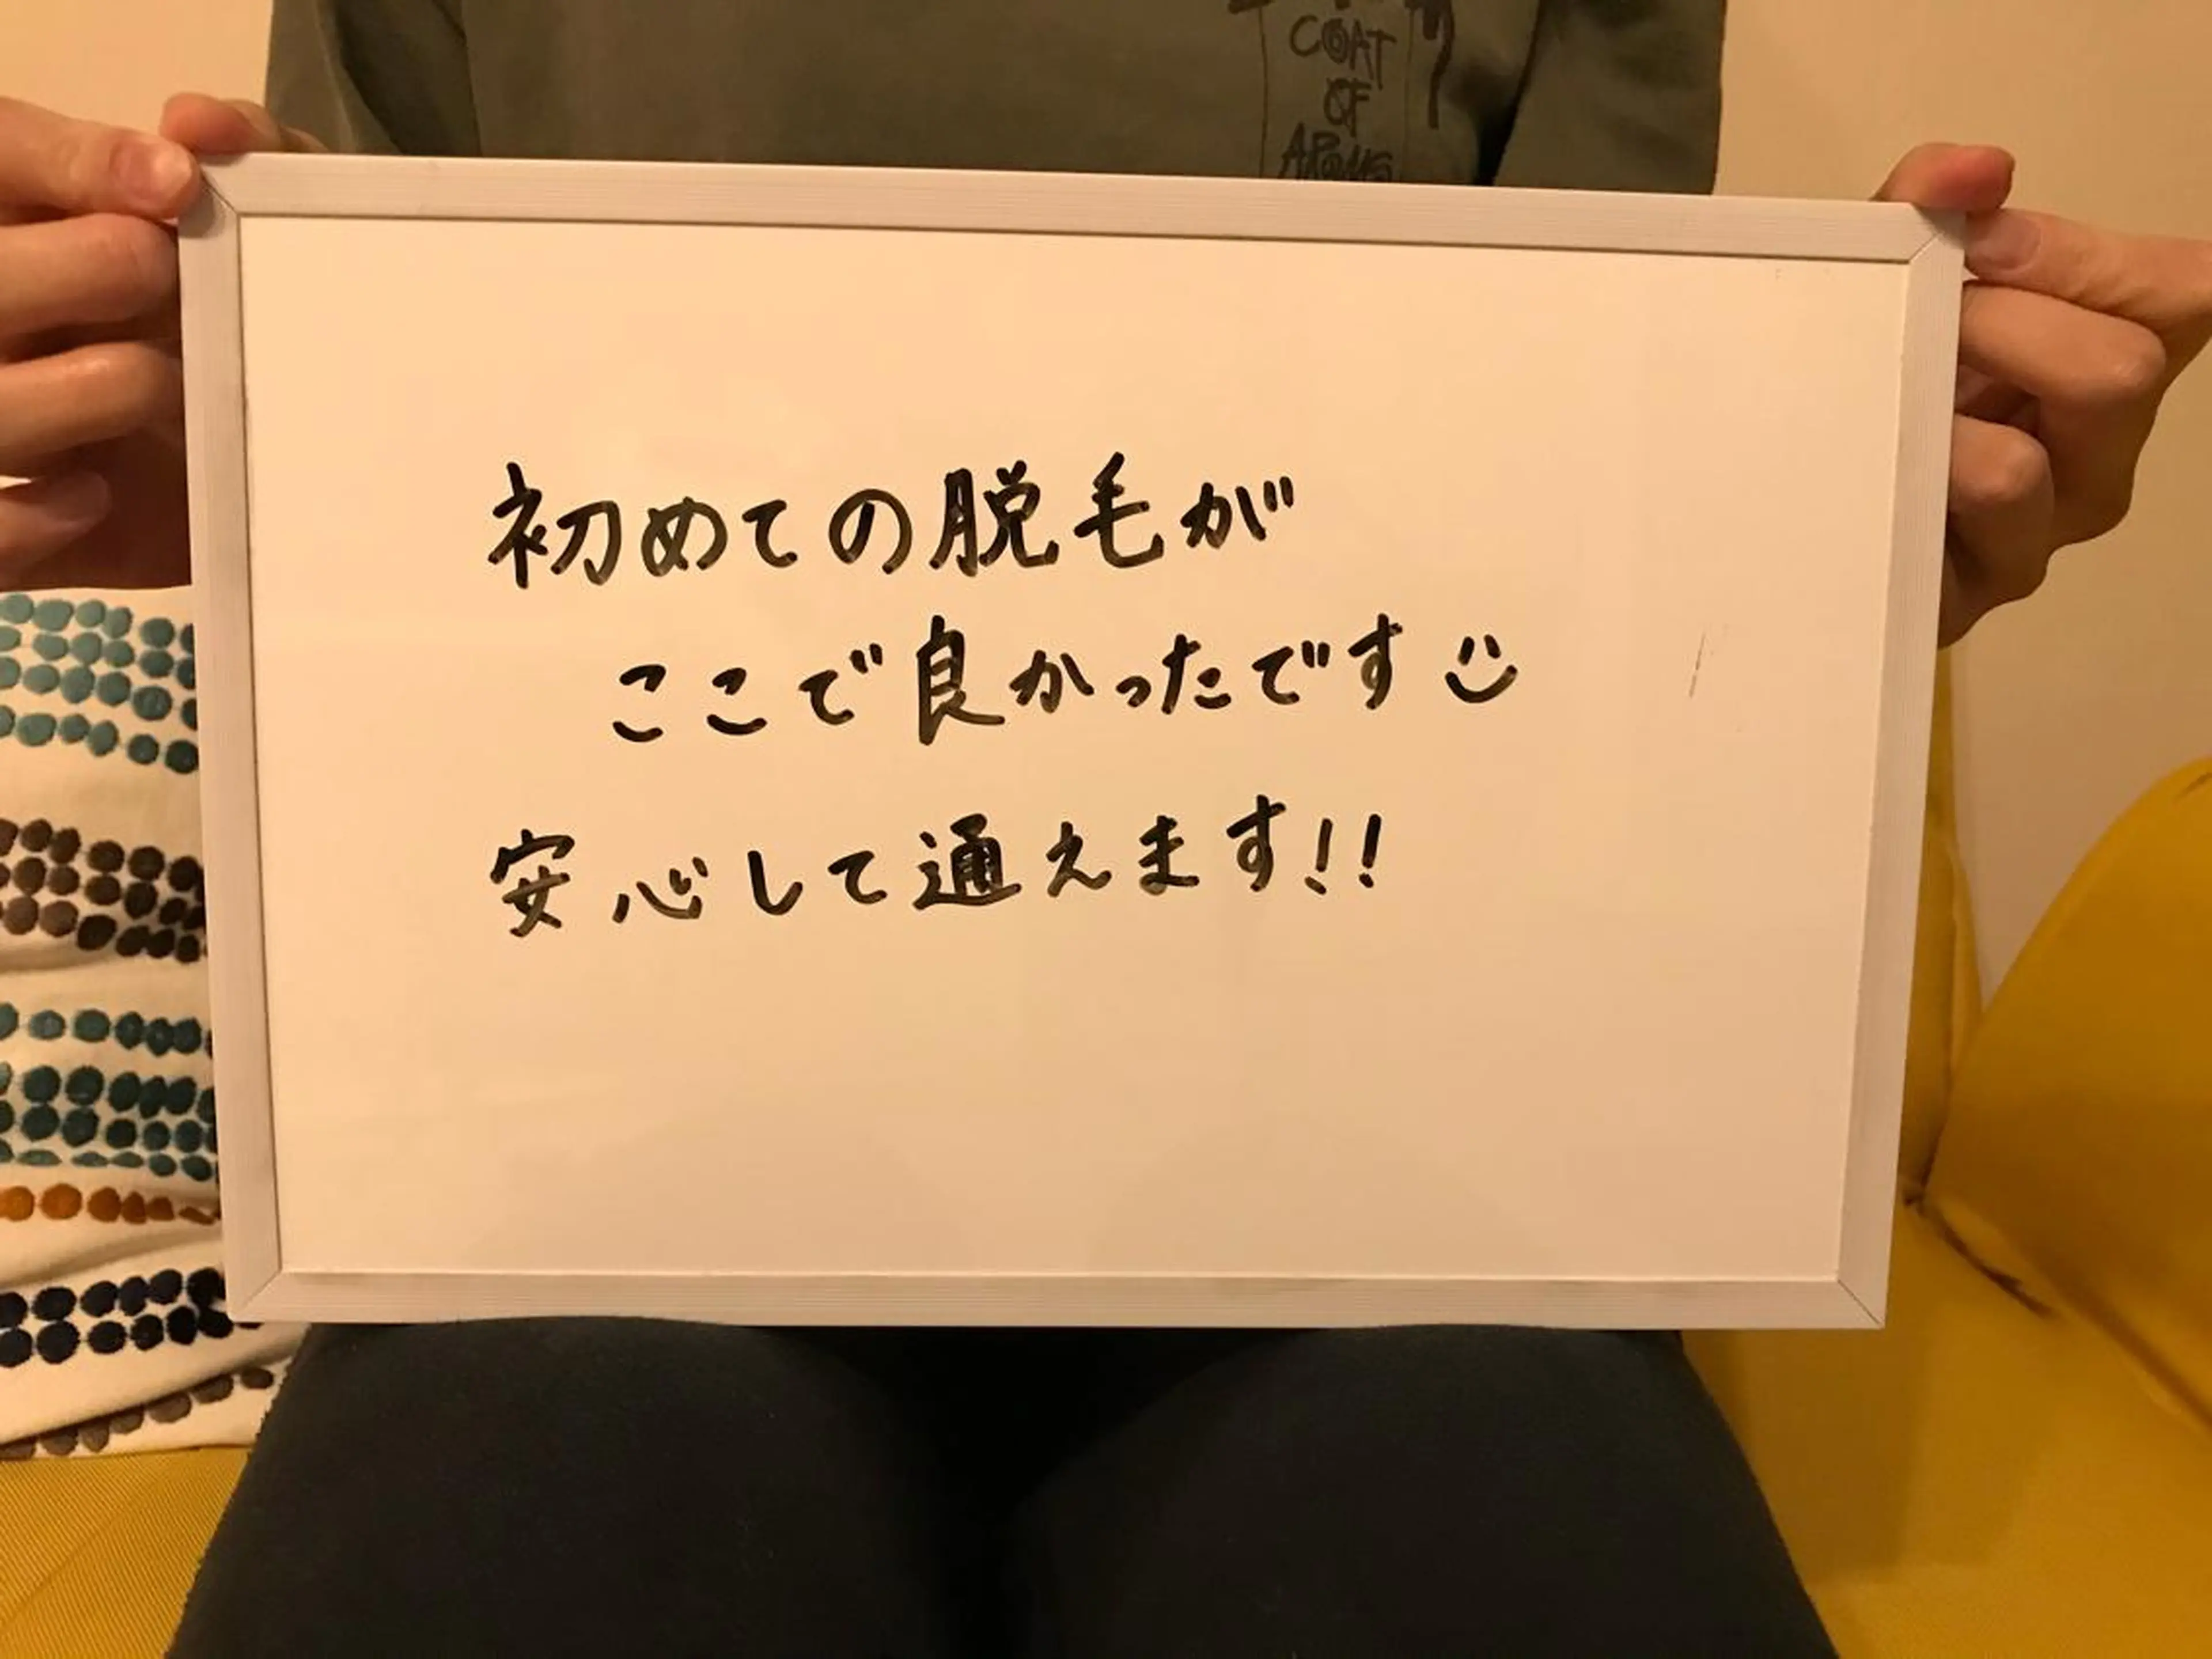 COAT
OF
初めての脱毛が
ここで良かったです
安心して通えます!!